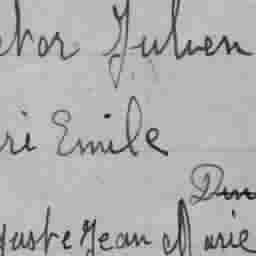 ctor Julien
ri Emile
guste Jean Marie